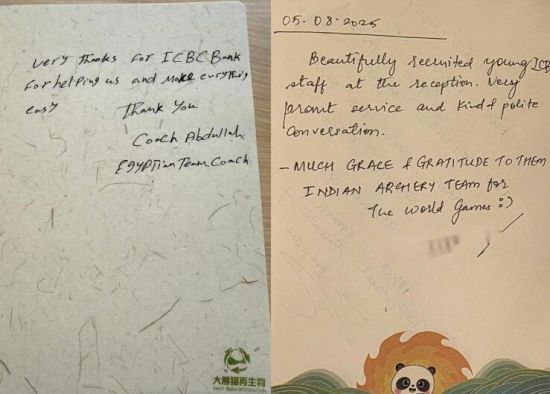 very thanks for ICBC Bank
for helping us and make everything
easy Thank You
Coach Abdullah
Egyptian Team Coach
大熊猫再生物
05.08.2025
Beautifully recruited young ICB
staff at the reception. Very
promt service and kind & polite
Conversation.
- MUCH GRACE & GRATITUDE TO THEM
INDIAN ARCHERY TEAM for
the world Games :)